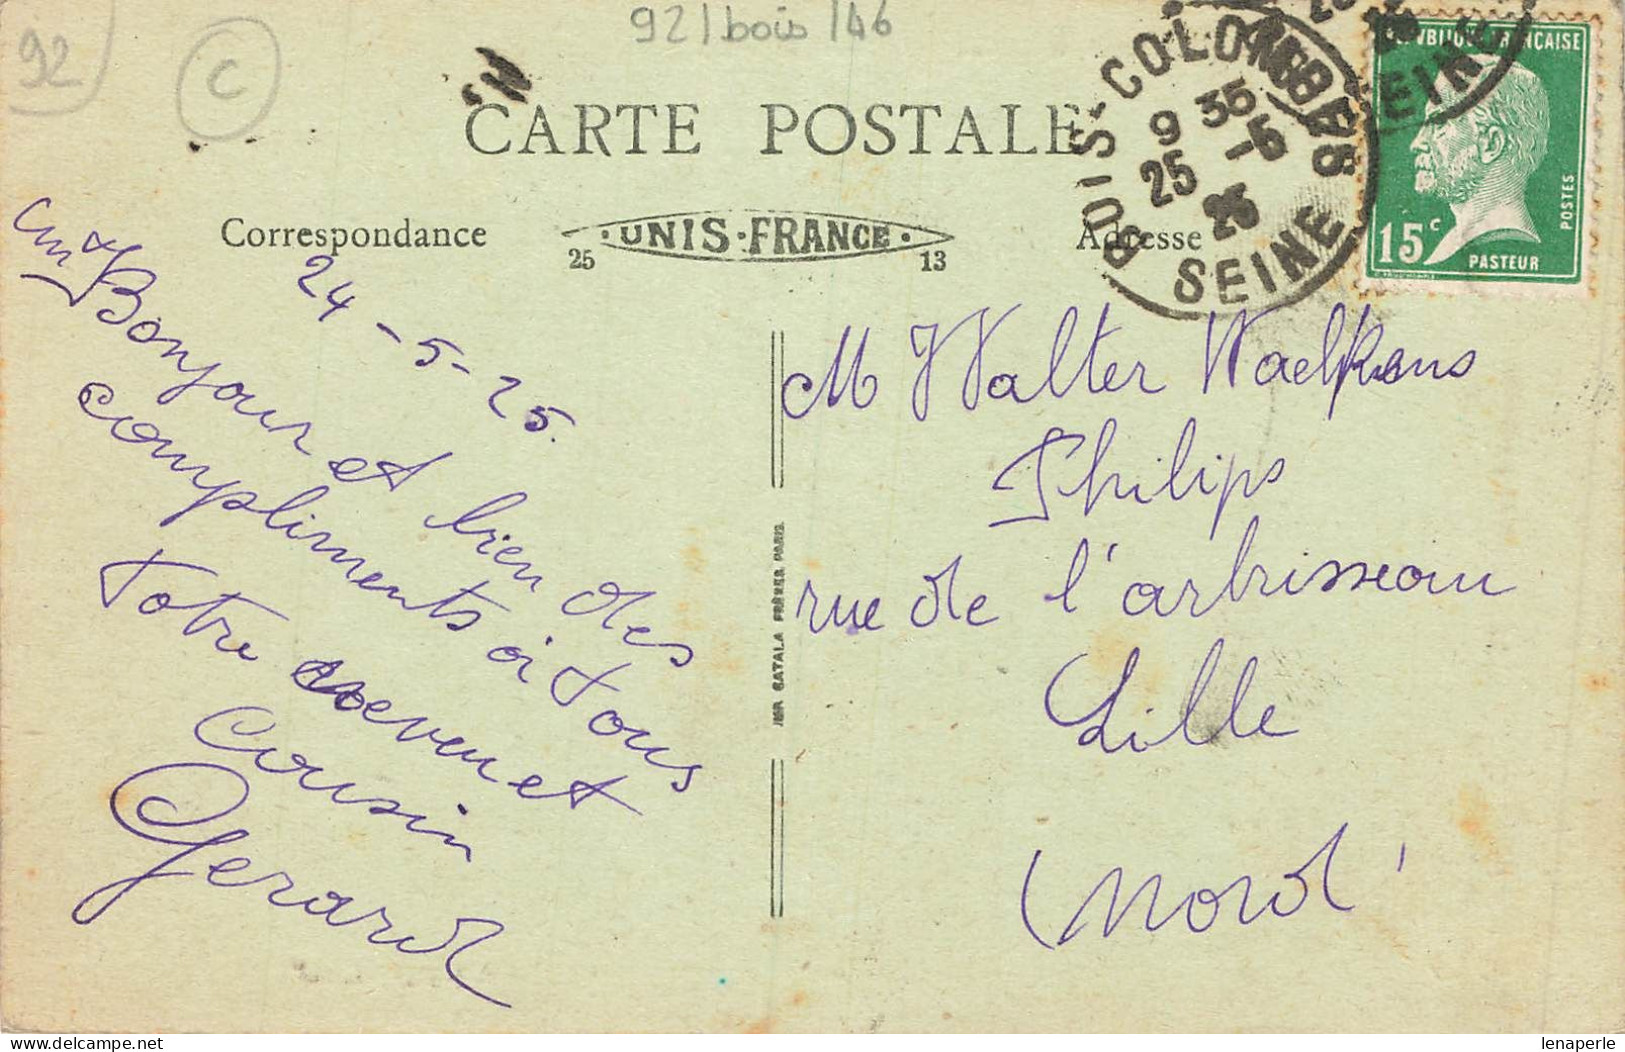 92
C
92/bois/46
CARTE POSTALE
Correspondance
25 UNIS-FRANCE 13
Adresse
BOIS-COLOMBES
9 35
25 - 5
25
SEINE
SEINE
RÉPUBLIQUE FRANÇAISE
POSTES
15c
PASTEUR
24-5-25.
Bonjour et bien des
compliments à tous
Votre neveu et
cousin
Gerard
IMP. CATALA FRÈRES PARIS
M Walter
Philips
rue de l'arbrisseau
Lille
Nord
lenaperle